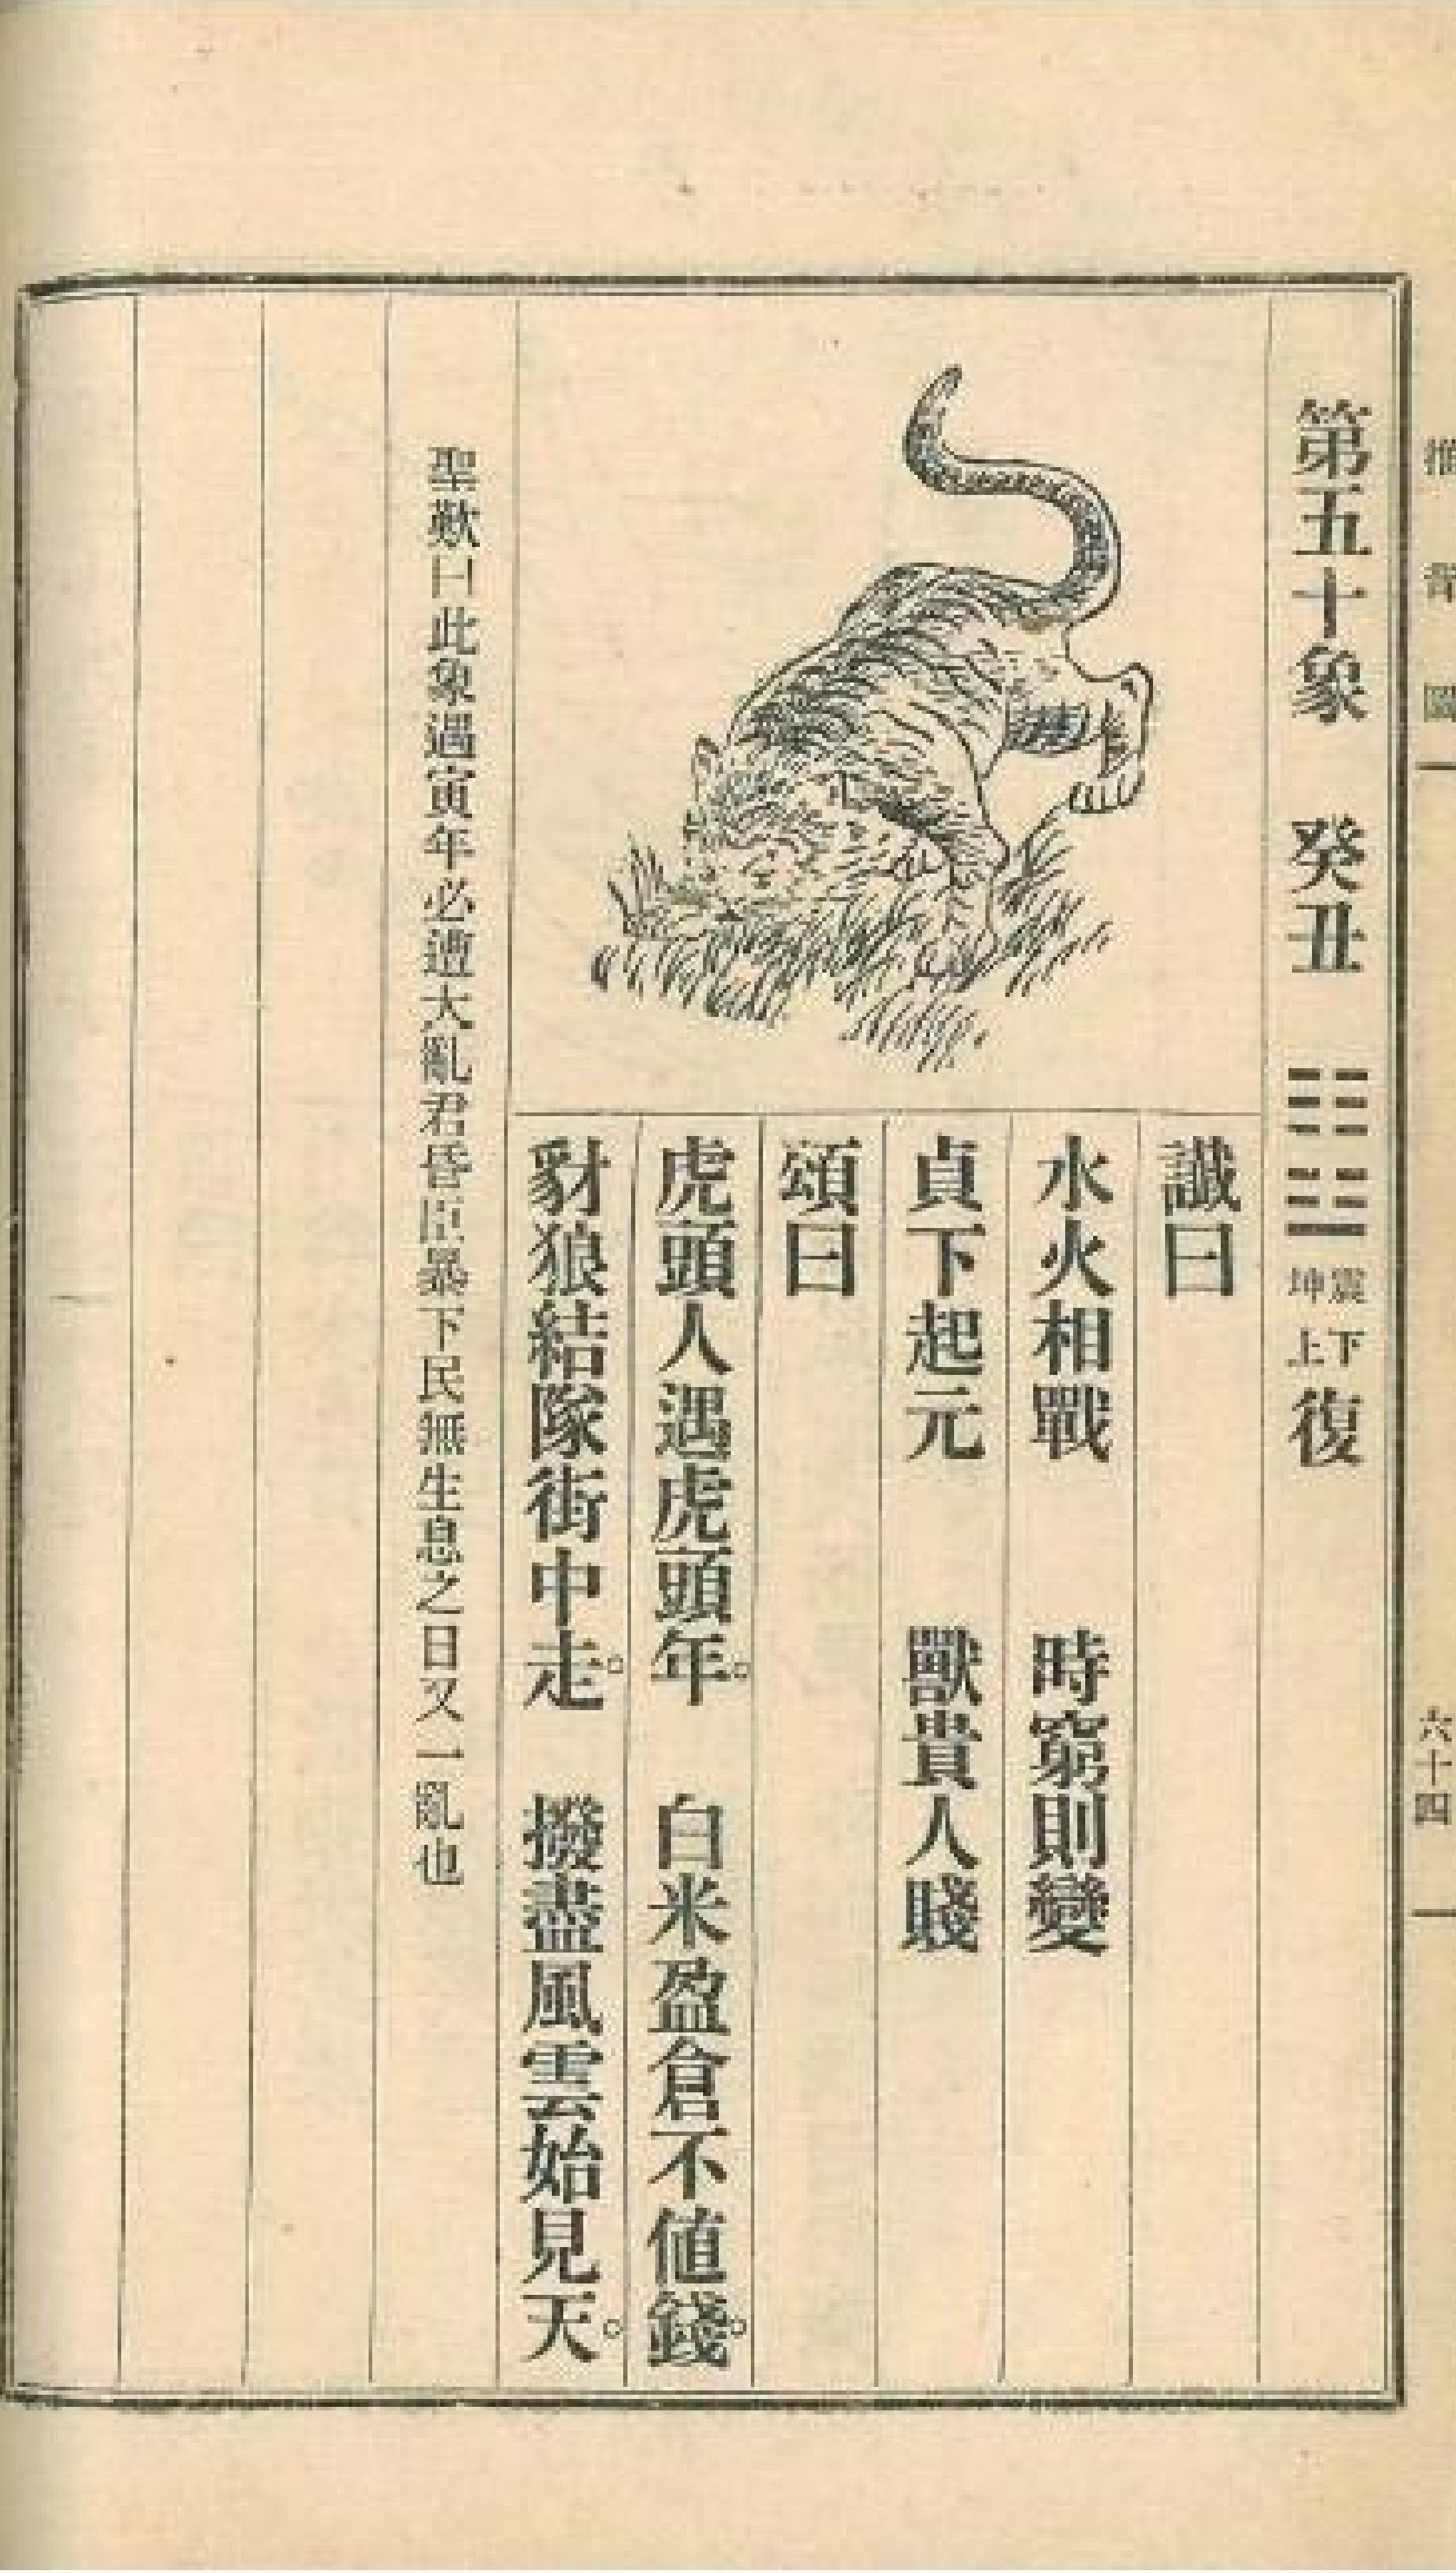 推背圖
六十四
第五十象 癸丑 ䷗ 震下坤上 復
讖曰
水火相戰 時窮則變
貞下起元 獸貴人賤
頌曰
虎頭人遇虎頭年。 白米盈倉不值錢。
豺狼結隊街中走。 撥盡風雲始見天。
聖歎曰此象遇寅年必遭大亂君昏臣暴下民無生息之日又一亂也